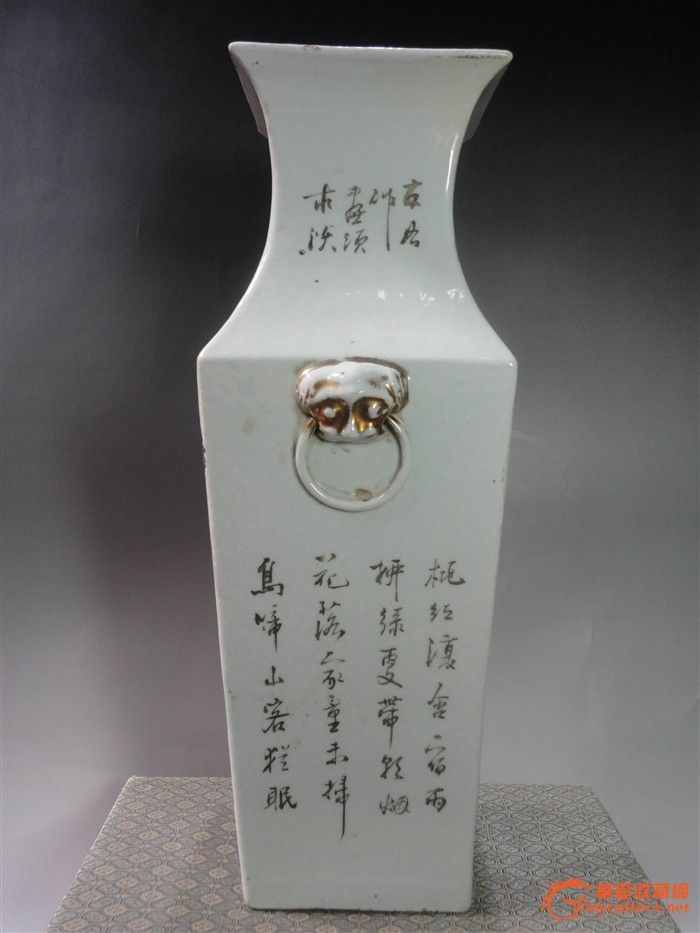 作
畫須
桃紅復含宿雨
柳綠更帶朝烟
花落家童未掃
鳥啼山客猶眠
華夏收藏網